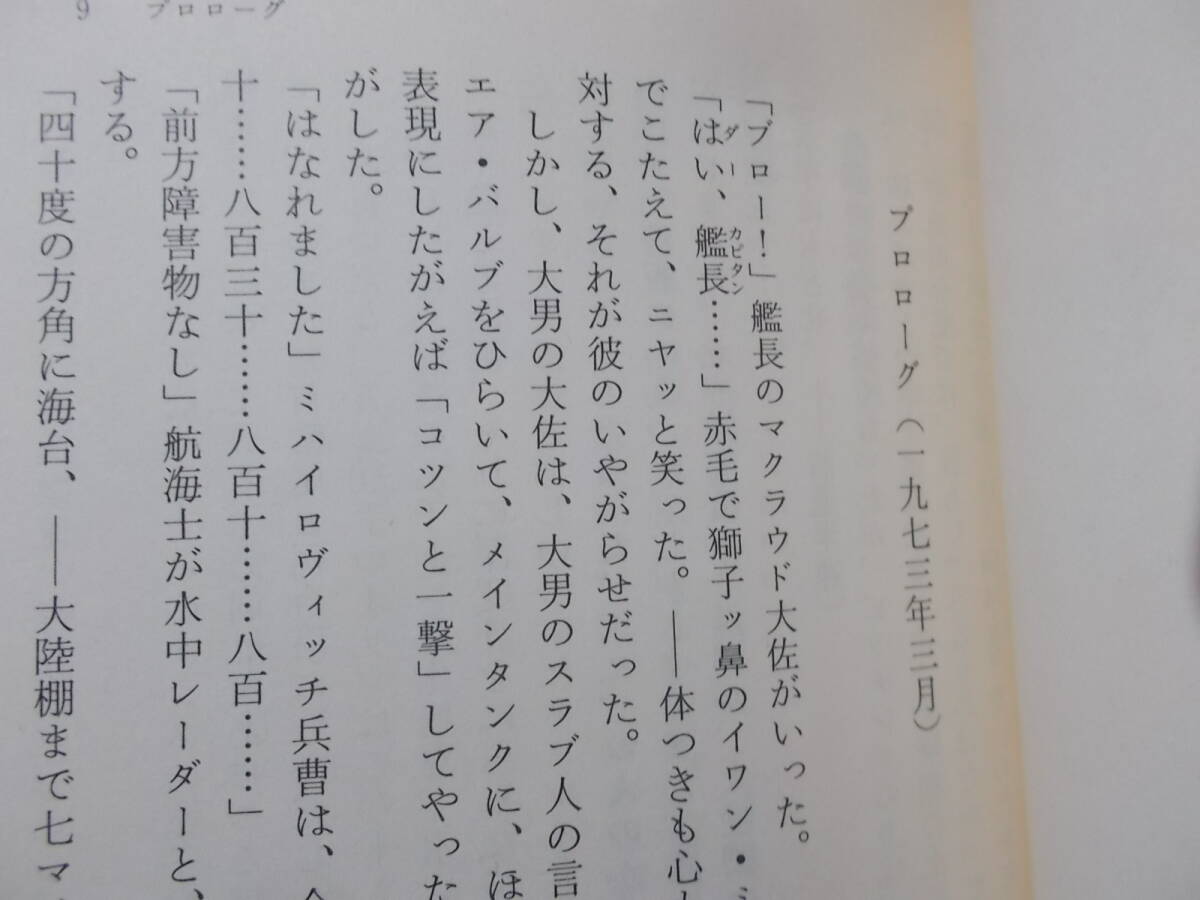 9 プロローグ
プロローグ(一九七三年三月)
「ブロー!」艦長のマクラウド大佐がいった。
「はい、艦長……」赤毛で獅子ッ鼻のイワン・ミ
ダー カピタン
でこたえて、ニヤッと笑った。――体つきも心
対する、それが彼のいやがらせだった。
しかし、大男の大佐は、大男のスラブ人の言
エア・バルブをひらいて、メインタンクに、ほ
表現にしたがえば「コツンと一撃」してやった
がした。
「はなれました」ミハイロヴィッチ兵曹は、
十……八百三十………八百十………八百……」
「前方障害物なし」航海士が水中レーダーと、
する。
「四十度の方角に海台、――大陸棚まで七マ